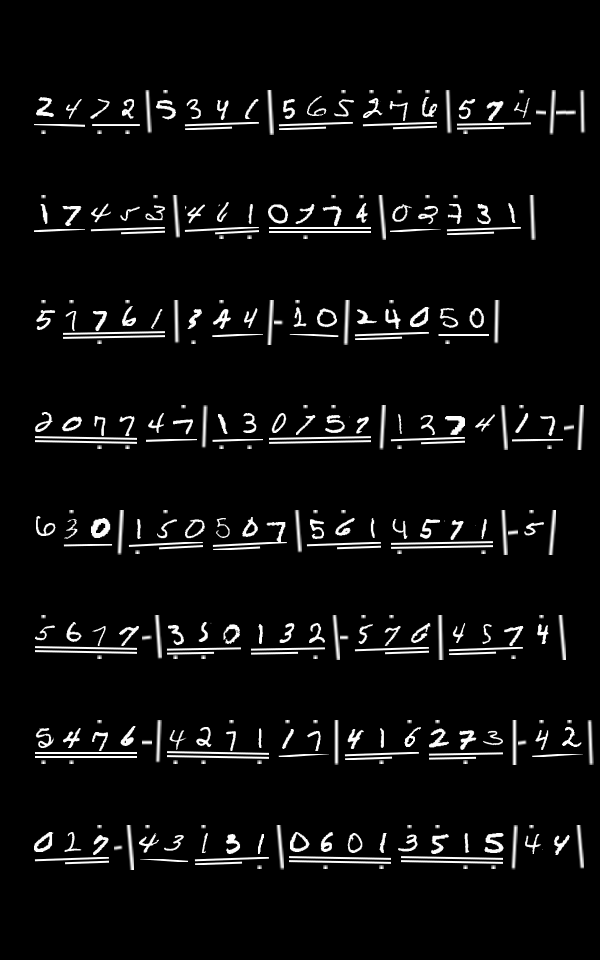 2472|5341|565276|574-|-|
17453|4610774|03731|
57761|344|-10|24050|
207747|130757|12374|17-|
630|150507|5614571|-5|
5617-|350132|-576|4574|
5476-|427117|416273|-42|
027-|43131|06013515|44|